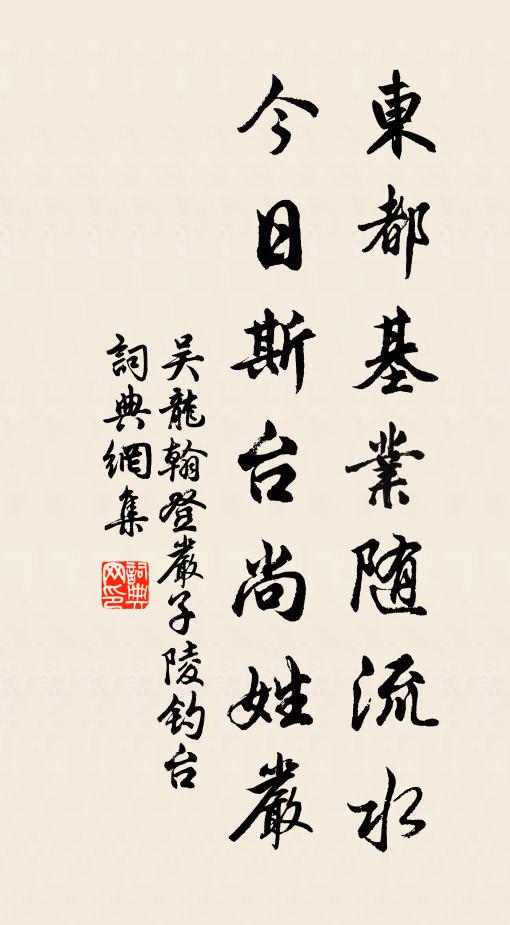 東都基業随流水
今日斯台尚姓嚴
吴龍翰登嚴子陵钓台
詞典網集
詞典网印